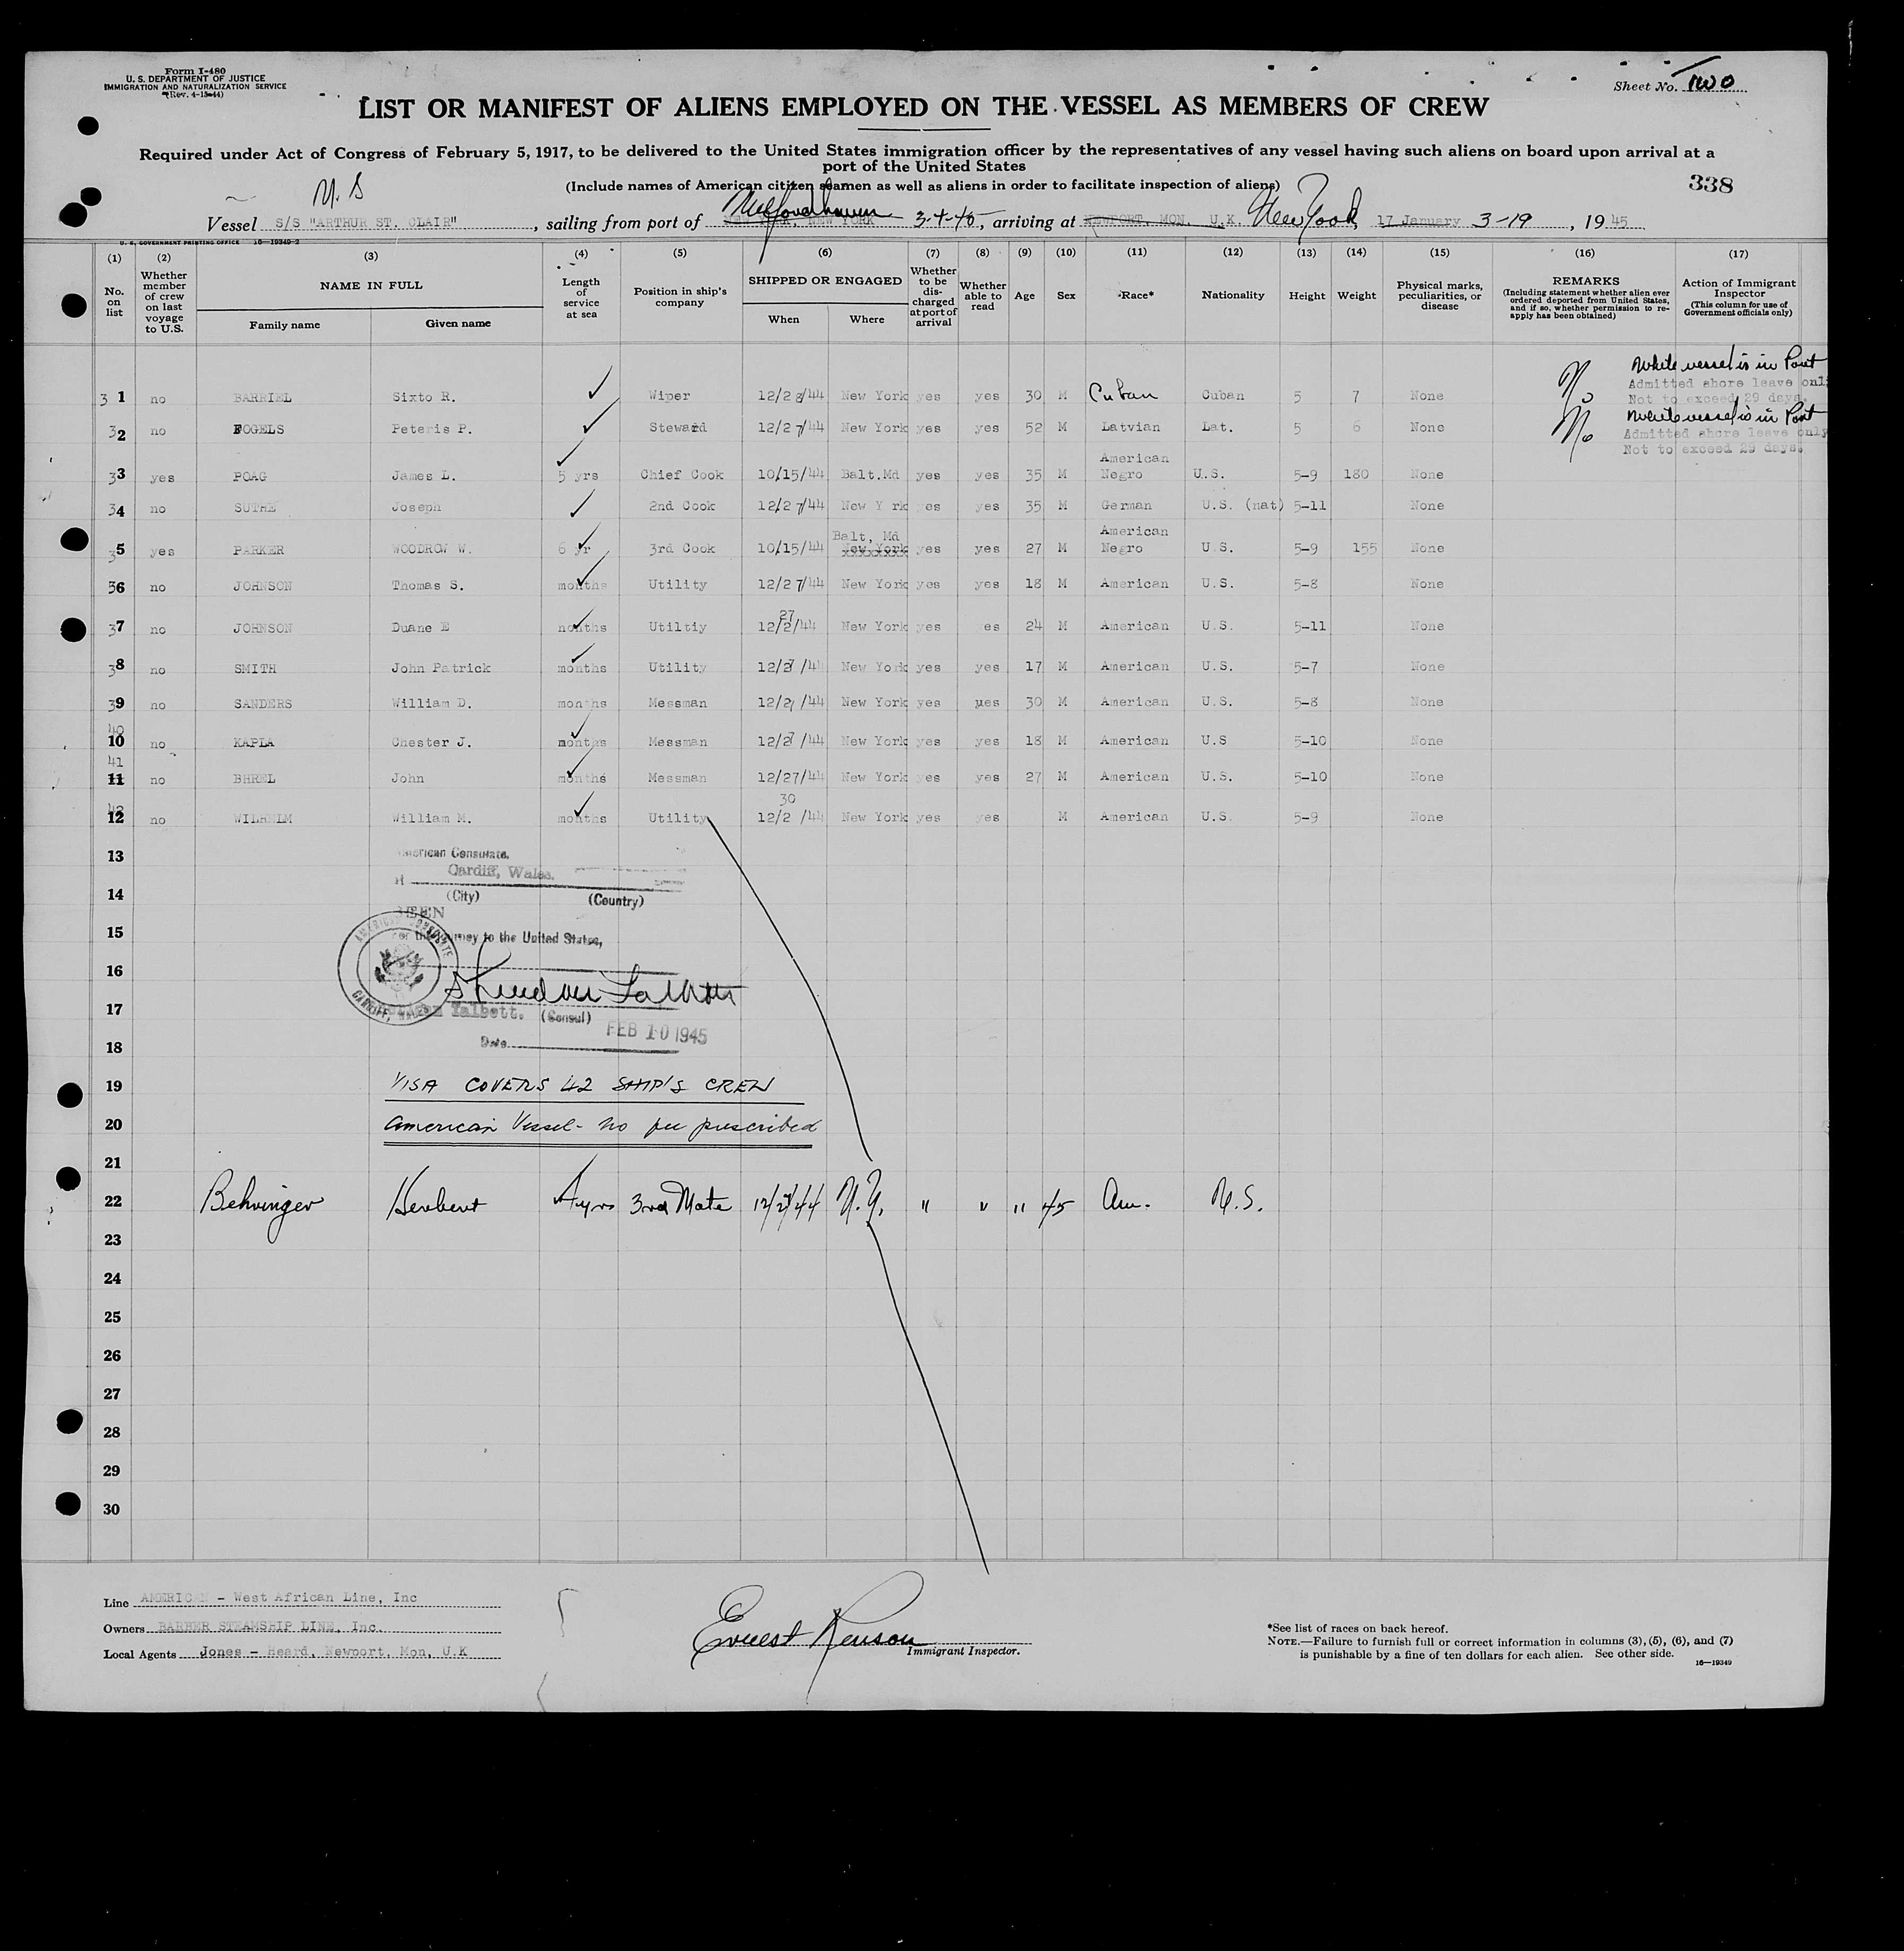 Form I-480
U. S. DEPARTMENT OF JUSTICE
IMMIGRATION AND NATURALIZATION SERVICE
(Rev. 4-15-44)
Sheet No. Two
LIST OR MANIFEST OF ALIENS EMPLOYED ON THE VESSEL AS MEMBERS OF CREW
Required under Act of Congress of February 5, 1917, to be delivered to the United States immigration officer by the representatives of any vessel having such aliens on board upon arrival at a
port of the United States
(Include names of American citizen seamen as well as aliens in order to facilitate inspection of aliens)
338
M. S
Vessel S/S "ARTHUR ST. CLAIR", sailing from port of NEW YORK, NEW YORK 3-4-45, arriving at NEWPORT, MON. U.K. New York 17 January 3-19, 1945
U. S. GOVERNMENT PRINTING OFFICE 16—19349-2
(1) (2) (3) (4) (5) (6) (7) (8) (9) (10) (11) (12) (13) (14) (15) (16) (17)
No. on list
Whether member of crew on last voyage to U.S.
NAME IN FULL
Family name
Given name
Length of service at sea
Position in ship's company
SHIPPED OR ENGAGED
When
Where
Whether to be discharged at port of arrival
Whether able to read
Age
Sex
Race*
Nationality
Height
Weight
Physical marks, peculiarities, or disease
REMARKS
(Including statement whether alien ever ordered deported from United States, and if so, whether permission to reapply has been obtained)
Action of Immigrant Inspector
(This column for use of Government officials only)
31 no BARRIEL Sixto R. Wiper 12/28/44 New York yes yes 30 M Cuban Cuban 5 7 None No
While vessel is in Port
Admitted shore leave only
Not to exceed 29 days.
32 no FOGELS Peteris P. Steward 12/27/44 New York yes yes 52 M Latvian Lat. 5 6 None No
While vessel is in Port
Admitted shore leave only
Not to exceed 29 days.
33 yes POAG James L. 5 yrs Chief Cook 10/15/44 Balt.Md yes yes 35 M American Negro U.S. 5-9 180 None
34 no SUTHE Joseph 2nd Cook 12/27/44 New Y rk yes yes 35 M German U.S. (nat) 5-11 None
35 yes PARKER WOODROW W. 6 yr 3rd Cook 10/15/44 Balt, Md New York yes yes 27 M American Negro U.S. 5-9 155 None
36 no JOHNSON Thomas S. months Utility 12/27/44 New York yes yes 18 M American U.S. 5-8 None
37 no JOHNSON Duane E months Utiltiy 12/2/44 27 New York yes es 24 M American U.S. 5-11 None
38 no SMITH John Patrick months Utility 12/27/44 New York yes yes 17 M American U.S. 5-7 None
39 no SANDERS William D. months Messman 12/27/44 New York yes yes 30 M American U.S. 5-8 None
40 10 no KAPLA Chester J. months Messman 12/27/44 New York yes yes 18 M American U.S 5-10 None
41 11 no BHREL John months Messman 12/27/44 New York yes yes 27 M American U.S. 5-10 None
42 12 no WILHELM William M. months Utility 12/2 /44 30 New York yes yes M American U.S. 5-9 None
13
American Consulate,
at Cardiff, Wales.
14
(City) (Country)
SEEN
15
For the journey to the United States,
AMERICAN CONSULATE
CARDIFF, WALES
16
17
Talbott. (Consul)
Date FEB 10 1945
18
19 VISA COVERS 42 SHIP'S CREW
20 American Vessel - no fee prescribed
21
22 Behringer Herbert 4 yrs 3rd Mate 12/27/44 N.Y. " " " 45 Am. U.S.
23
24
25
26
27
28
29
30
Line AMERICAN - West African Line, Inc
Owners BARBER STEAMSHIP LINE, Inc.
Local Agents Jones - Heard, Newport, Mon, U.K
Ernest Renson
Immigrant Inspector.
*See list of races on back hereof.
NOTE.—Failure to furnish full or correct information in columns (3), (5), (6), and (7)
is punishable by a fine of ten dollars for each alien. See other side.
16—19349